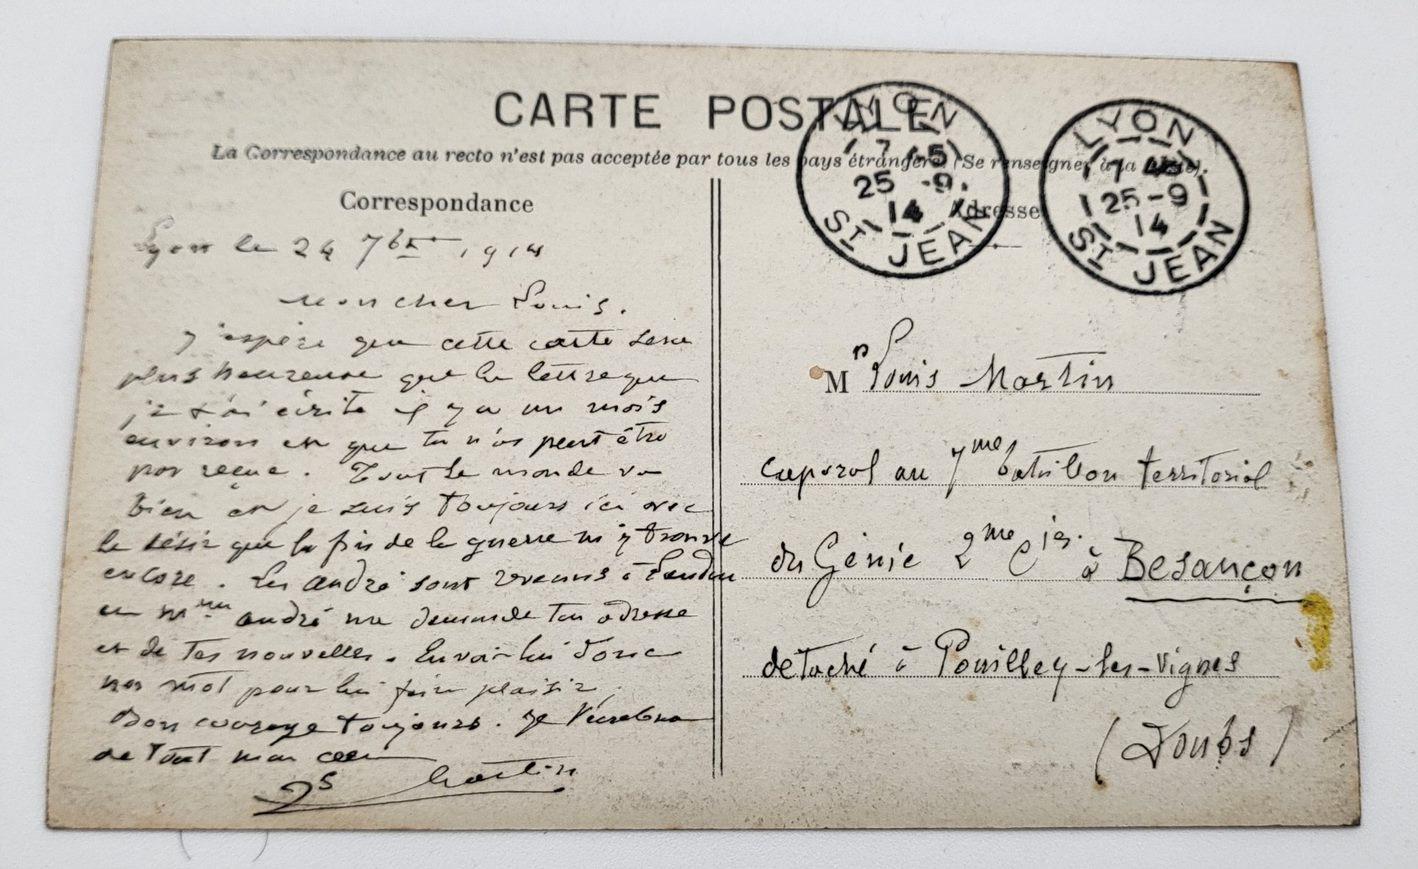 CARTE POSTALE
La Correspondance au recto n'est pas acceptée par tous les pays étrangers. (Se renseigner à la Poste).
Correspondance
Adresse
LYON
7 45
25 -9
14
ST JEAN
LYON
7 45
25 -9
14
ST JEAN
Lyon le 24 7bre 1914
Mon cher Louis.
J'espère que cette carte sera
plus heureuse que la lettre que
je t'ai écrite il y a un mois
environ et que tu n'as peut être
pas reçue. Tout le monde va
bien et je suis toujours ici avec
le désir que la fin de la guerre m'y trouve
encore. Les André sont revenus à
et Mme André me demande ton adresse
et de tes nouvelles. Envoie lui donc
un mot pour lui faire plaisir.
Bon courage toujours. Je
de tout mon coeur
Martin
Mr Louis Martin
caporal au 7me bataillon territorial
du Génie 2me Cie à Besançon
détaché à Pouilley-les-Vignes
(Doubs)